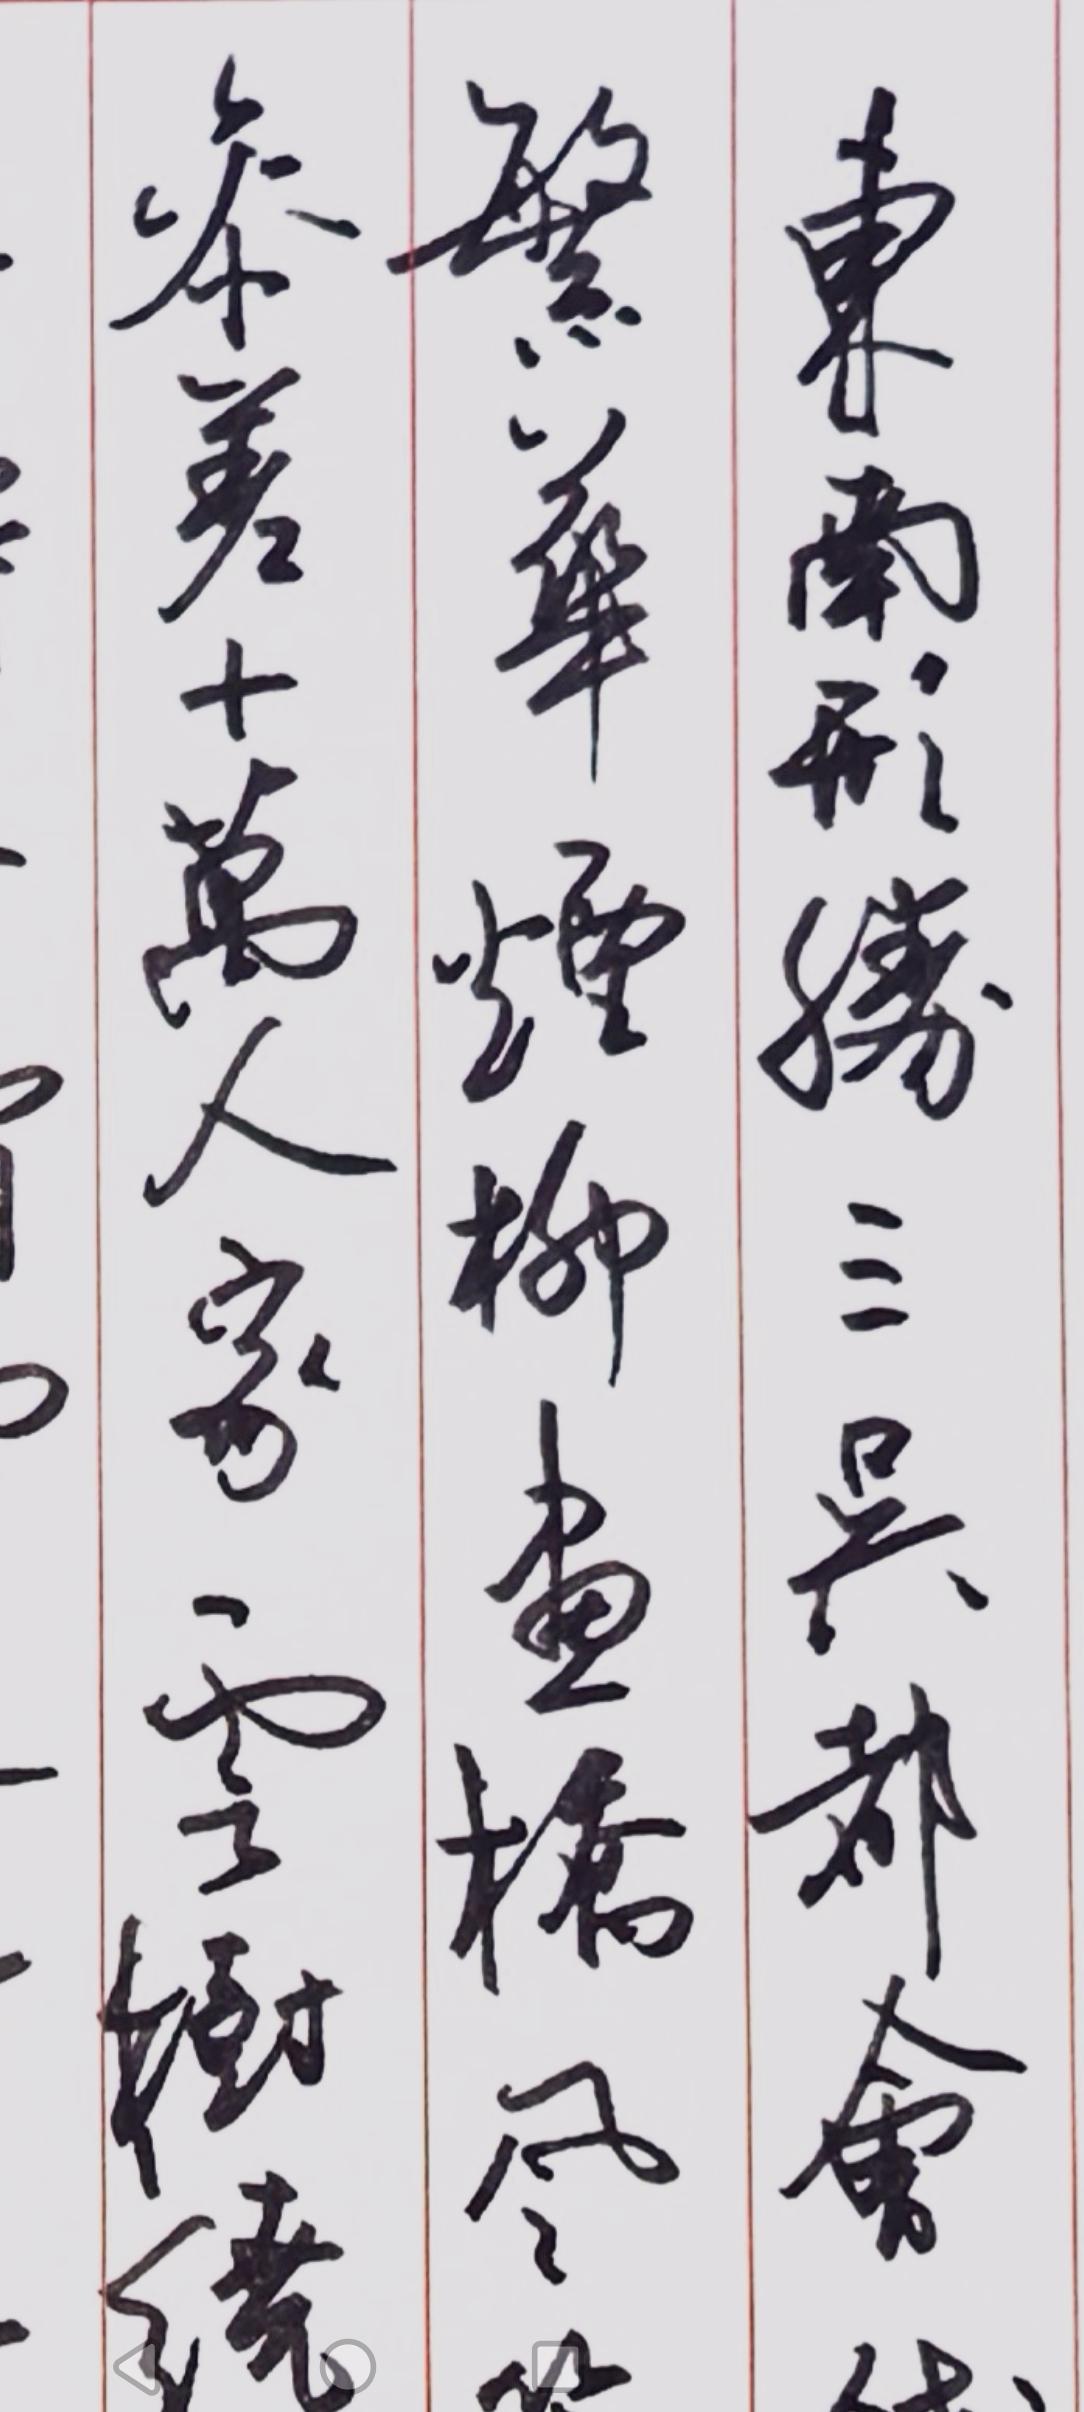 東南形勝三吳都會
繁華煙柳畫橋風
參差十萬人家雲樹繞